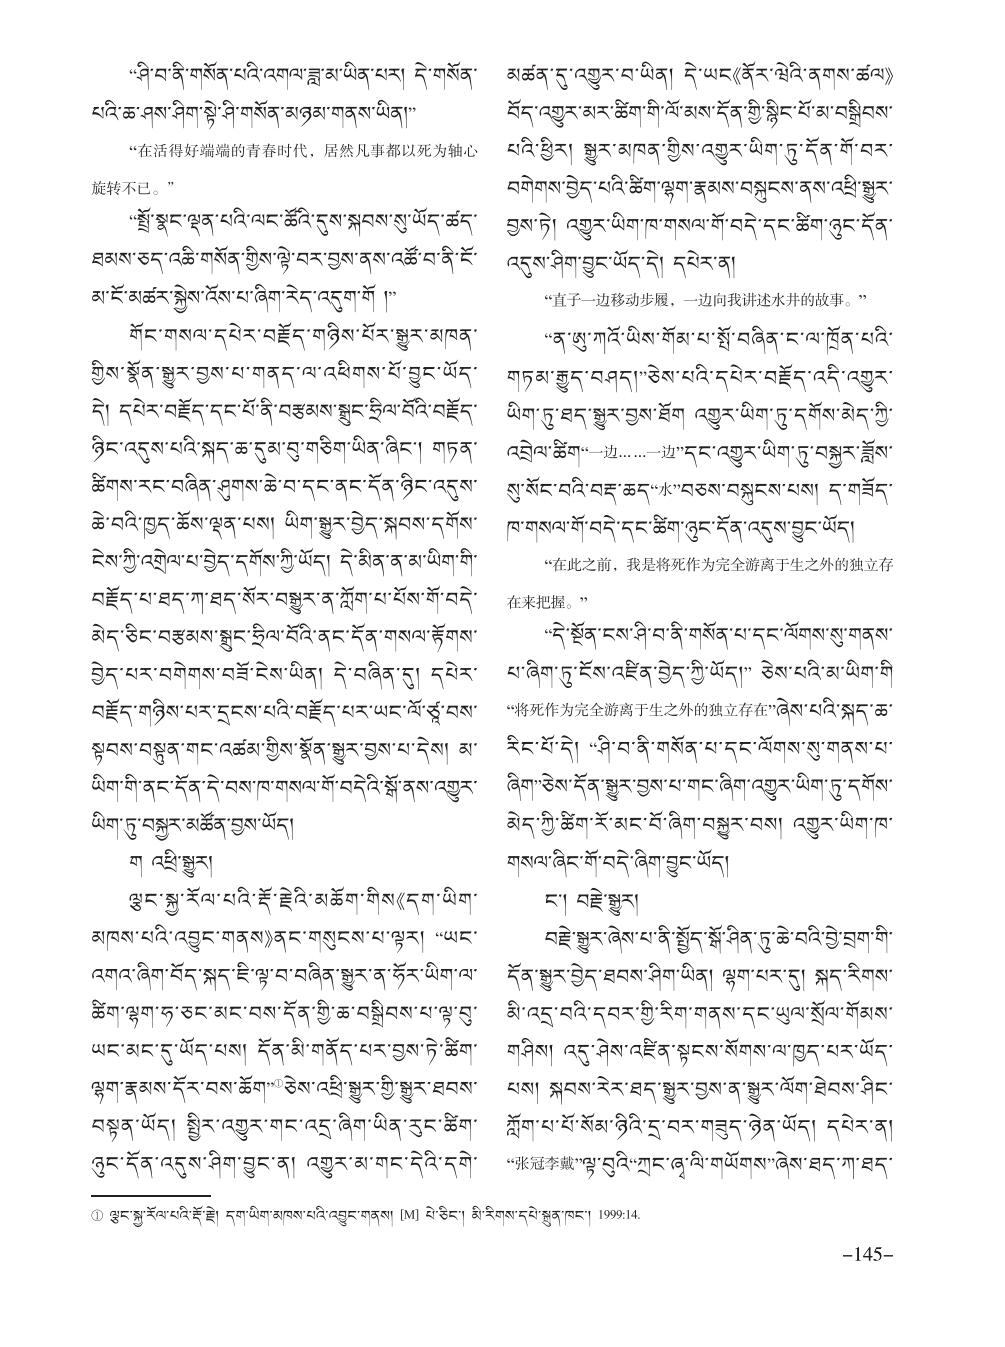 “ཤི་བ་ནི་གསོན་པའི་འགལ་ཟླ་མ་ཡིན་པར། དེ་གསོན་
པའི་ཆ་ཤས་ཤིག་སྟེ་ཤི་གསོན་མཉམ་གནས་ཡིན།”
“在活得好端端的青春时代，居然凡事都以死为轴心
旋转不已。”
“སྤྲོ་སྣང་ལྡན་པའི་ལང་ཚོའི་དུས་སྐབས་སུ་ཡོད་ཚད་
ཐམས་ཅད་འཆི་གསོན་གྱིས་ལྟེ་བར་བྱས་ནས་འཚོ་བ་ནི་ངོ་
མ་ངོ་མཚར་སྐྱེས་འོས་པ་ཞིག་རེད་འདུག་གོ །”
གོང་གསལ་དཔེར་བརྗོད་གཉིས་པོར་སྒྱུར་མཁན་
གྱིས་སྣོན་སྒྱུར་བྱས་པ་གནད་ལ་འཕིགས་པོ་བྱུང་ཡོད་
དེ། དཔེར་བརྗོད་དང་པོ་ནི་བརྩམས་སྒྲུང་ཧྲིལ་བོའི་བརྗོད་
ཉིང་འདུས་པའི་སྐད་ཆ་དུམ་བུ་གཅིག་ཡིན་ཞིང་། གཏན་
ཚིགས་རང་བཞིན་ཤུགས་ཆེ་བ་དང་ནང་དོན་ཉིང་འདུས་
ཆེ་བའི་ཁྱད་ཆོས་ལྡན་པས། ཡིག་སྒྱུར་བྱེད་སྐབས་དགོས་
ངེས་ཀྱི་འགྲེལ་པ་བྱེད་དགོས་ཀྱི་ཡོད། དེ་མིན་ན་མ་ཡིག་གི་
བརྗོད་པ་ཐད་ཀ་ཐད་སོར་བསྒྱུར་ན་ཀློག་པ་པོས་གོ་བདེ་
མེད་ཅིང་བརྩམས་སྒྲུང་ཧྲིལ་བོའི་ནང་དོན་གསལ་རྟོགས་
བྱེད་པར་བགེགས་བཟོ་ངེས་ཡིན། དེ་བཞིན་དུ། དཔེར་
བརྗོད་གཉིས་པར་དྲངས་པའི་བརྗོད་པར་ཡང་ལོ་ཙཱ་བས་
སྟབས་བསྟུན་གང་འཚམ་གྱིས་སྣོན་སྒྱུར་བྱས་པ་དེས། མ་
ཡིག་གི་ནང་དོན་དེ་བས་ཁ་གསལ་གོ་བདེའི་སྒོ་ནས་འགྱུར་
ཡིག་ཏུ་བསྐྱར་མཚོན་བྱས་ཡོད།
ག འཕྲི་སྒྱུར།
ལྕང་སྐྱ་རོལ་པའི་རྡོ་རྗེའི་མཆོག་གིས《དག་ཡིག་
མཁས་པའི་འབྱུང་གནས》ནང་གསུངས་པ་ལྟར། “ཡང་
འགའ་ཞིག་བོད་སྐད་ཇི་ལྟ་བ་བཞིན་སྒྱུར་ན་ཧོར་ཡིག་ལ་
ཚིག་ལྷག་ཧ་ཅང་མང་བས་དོན་གྱི་ཆ་བསྒྲིབས་པ་ལྟ་བུ་
ཡང་མང་དུ་ཡོད་པས། དོན་མི་གནོད་པར་བྱས་ཏེ་ཚིག་
ལྷག་རྣམས་དོར་བས་ཆོག”①ཅེས་འཕྲི་སྒྱུར་གྱི་སྒྱུར་ཐབས་
བསྟན་ཡོད། སྤྱིར་འགྱུར་གང་འདྲ་ཞིག་ཡིན་རུང་ཚིག་
ཉུང་དོན་འདུས་ཤིག་བྱུང་ན། འགྱུར་མ་གང་དེའི་དགེ་
མཚན་དུ་འགྱུར་བ་ཡིན། དེ་ཡང《ནོར་ཝེའི་ནགས་ཚལ》
བོད་འགྱུར་མར་ཚིག་གི་ལོ་མས་དོན་གྱི་སྙིང་པོ་མ་བསྒྲིབས་
པའི་ཕྱིར། སྒྱུར་མཁན་གྱིས་འགྱུར་ཡིག་ཏུ་དོན་གོ་བར་
བགེགས་བྱེད་པའི་ཚིག་ལྷག་རྣམས་བསྐུངས་ནས་འཕྲི་སྒྱུར་
བྱས་ཏེ། འགྱུར་ཡིག་ཁ་གསལ་གོ་བདེ་དང་ཚིག་ཉུང་དོན་
འདུས་ཤིག་བྱུང་ཡོད་དེ། དཔེར་ན།
“直子一边移动步履，一边向我讲述水井的故事。”
“ན་ཨུ་ཀའོ་ཡིས་གོམ་པ་སྤོ་བཞིན་ང་ལ་ཁྲོན་པའི་
གཏམ་རྒྱུད་བཤད།”ཅེས་པའི་དཔེར་བརྗོད་འདི་འགྱུར་
ཡིག་ཏུ་ཐད་སྒྱུར་བྱས་ཐོག འགྱུར་ཡིག་ཏུ་དགོས་མེད་ཀྱི་
འབྲེལ་ཚིག“一边……一边”དང་འགྱུར་ཡིག་ཏུ་བསྐྱར་ཟློས་
སུ་སོང་བའི་བརྡ་ཆད“水”བཅས་བསྐུངས་པས། ད་གཟོད་
ཁ་གསལ་གོ་བདེ་དང་ཚིག་ཉུང་དོན་འདུས་བྱུང་ཡོད།
“在此之前，我是将死作为完全游离于生之外的独立存
在来把握。”
“དེ་སྔོན་ངས་ཤི་བ་ནི་གསོན་པ་དང་ལོགས་སུ་གནས་
པ་ཞིག་ཏུ་ངོས་འཛིན་བྱེད་ཀྱི་ཡོད།” ཅེས་པའི་མ་ཡིག་གི
“将死作为完全游离于生之外的独立存在”ཞེས་པའི་སྐད་ཆ་
རིང་པོ་དེ། “ཤི་བ་ནི་གསོན་པ་དང་ལོགས་སུ་གནས་པ་
ཞིག”ཅེས་དོན་སྒྱུར་བྱས་པ་གང་ཞིག་འགྱུར་ཡིག་ཏུ་དགོས་
མེད་ཀྱི་ཚིག་རོ་མང་བོ་ཞིག་བསྐྱུར་བས། འགྱུར་ཡིག་ཁ་
གསལ་ཞིང་གོ་བདེ་ཞིག་བྱུང་ཡོད།
ང་། བརྗེ་སྒྱུར།
བརྗེ་སྒྱུར་ཞེས་པ་ནི་སྤྱོད་སྒོ་ཤིན་ཏུ་ཆེ་བའི་བྱེ་བྲག་གི་
དོན་སྒྱུར་བྱེད་ཐབས་ཤིག་ཡིན། ལྷག་པར་དུ། སྐད་རིགས་
མི་འདྲ་བའི་དབར་གྱི་རིག་གནས་དང་ཡུལ་སྲོལ་གོམས་
གཤིས། འདུ་ཤེས་འཛིན་སྟངས་སོགས་ལ་ཁྱད་པར་ཡོད་
པས། སྐབས་རེར་ཐད་སྒྱུར་བྱས་ན་སྒྱུར་ལོག་ཐེབས་ཤིང་
ཀློག་པ་པོ་སོམ་ཉིའི་དྲ་བར་གཟུད་ཉེན་ཡོད། དཔེར་ན།
“张冠李戴”ལྟ་བུའི“ཀྲང་ཞྭ་ལི་གཡོགས”ཞེས་ཐད་ཀ་ཐད་
① ལྕང་སྐྱ་རོལ་པའི་རྡོ་རྗེ། དག་ཡིག་མཁས་པའི་འབྱུང་གནས། [M] པེ་ཅིང་། མི་རིགས་དཔེ་སྐྲུན་ཁང་། 1999:14.
–145–